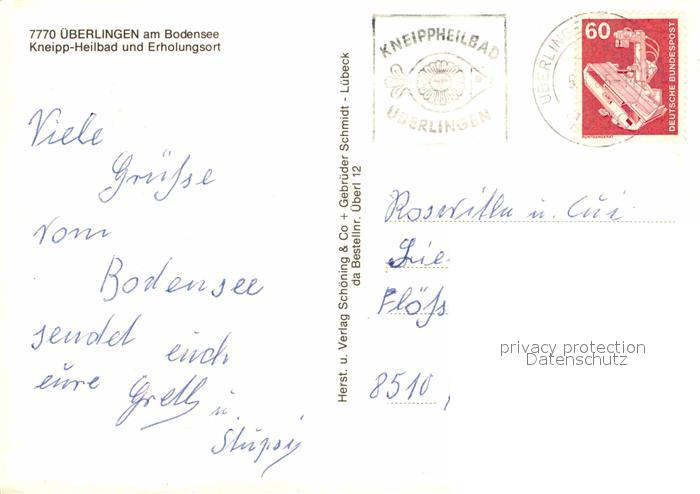 7770 ÜBERLINGEN am Bodensee
Kneipp-Heilbad und Erholungsort
Viele
Grüße
vom
Bodensee
sendet euch
eure Greth
u.
Stupsi
Herst. u. Verlag Schöning & Co + Gebrüder Schmidt - Lübeck
da Bestellnr. Überl 12
KNEIPPHEILBAD
ÜBERLINGEN
ÜBERLINGE
60
DEUTSCHE BUNDESPOST
RÖNTGENGERÄT
Roswitha u.
Flöß
8510,
privacy protection
Datenschutz